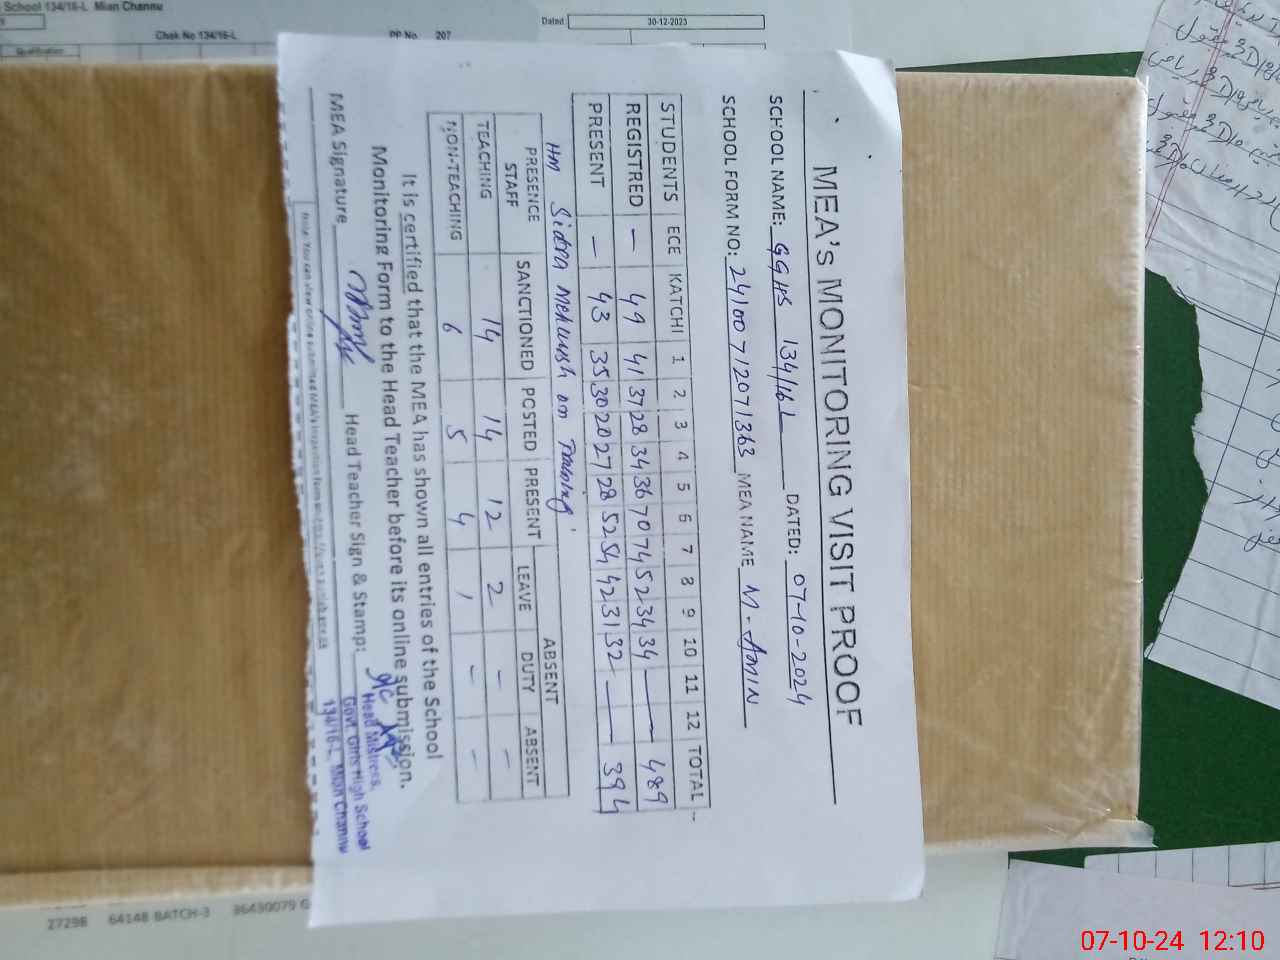 MEA'S MONITORING VISIT PROOF
SCHOOL NAME: GGHS 134/16 L DATED: 07-10-2024
SCHOOL FORM NO: 24100712071363 MEA NAME M. AMIN
STUDENTS ECE KATCHI 1 2 3 4 5 6 7 8 9 10 11 12 TOTAL
REGISTRED — 49 41 37 28 34 36 70 74 52 34 34 — — 489
PRESENT — 43 35 30 20 27 28 52 54 42 31 32 — — 394
Hm Sidra Mehwish on Training
PRESENCE STAFF SANCTIONED POSTED PRESENT ABSENT
LEAVE DUTY ABSENT
TEACHING 14 14 12 2 - -
NON-TEACHING 6 5 4 1 - -
It is certified that the MEA has shown all entries of the School
Monitoring Form to the Head Teacher before its online submission.
MEA Signature Head Teacher Sign & Stamp:
Head Mistress,
Govt. Girls High School
134/16-L, Mian Channu
Note: You can view online submitted MEA's Inspection form on
School 134/16-L Mian Channu
Dated 30-12-2023
Chak No 134/16-L PP No 207
Qualification
27298 64148 BATCH-3 36430079 G
07-10-24 12:10